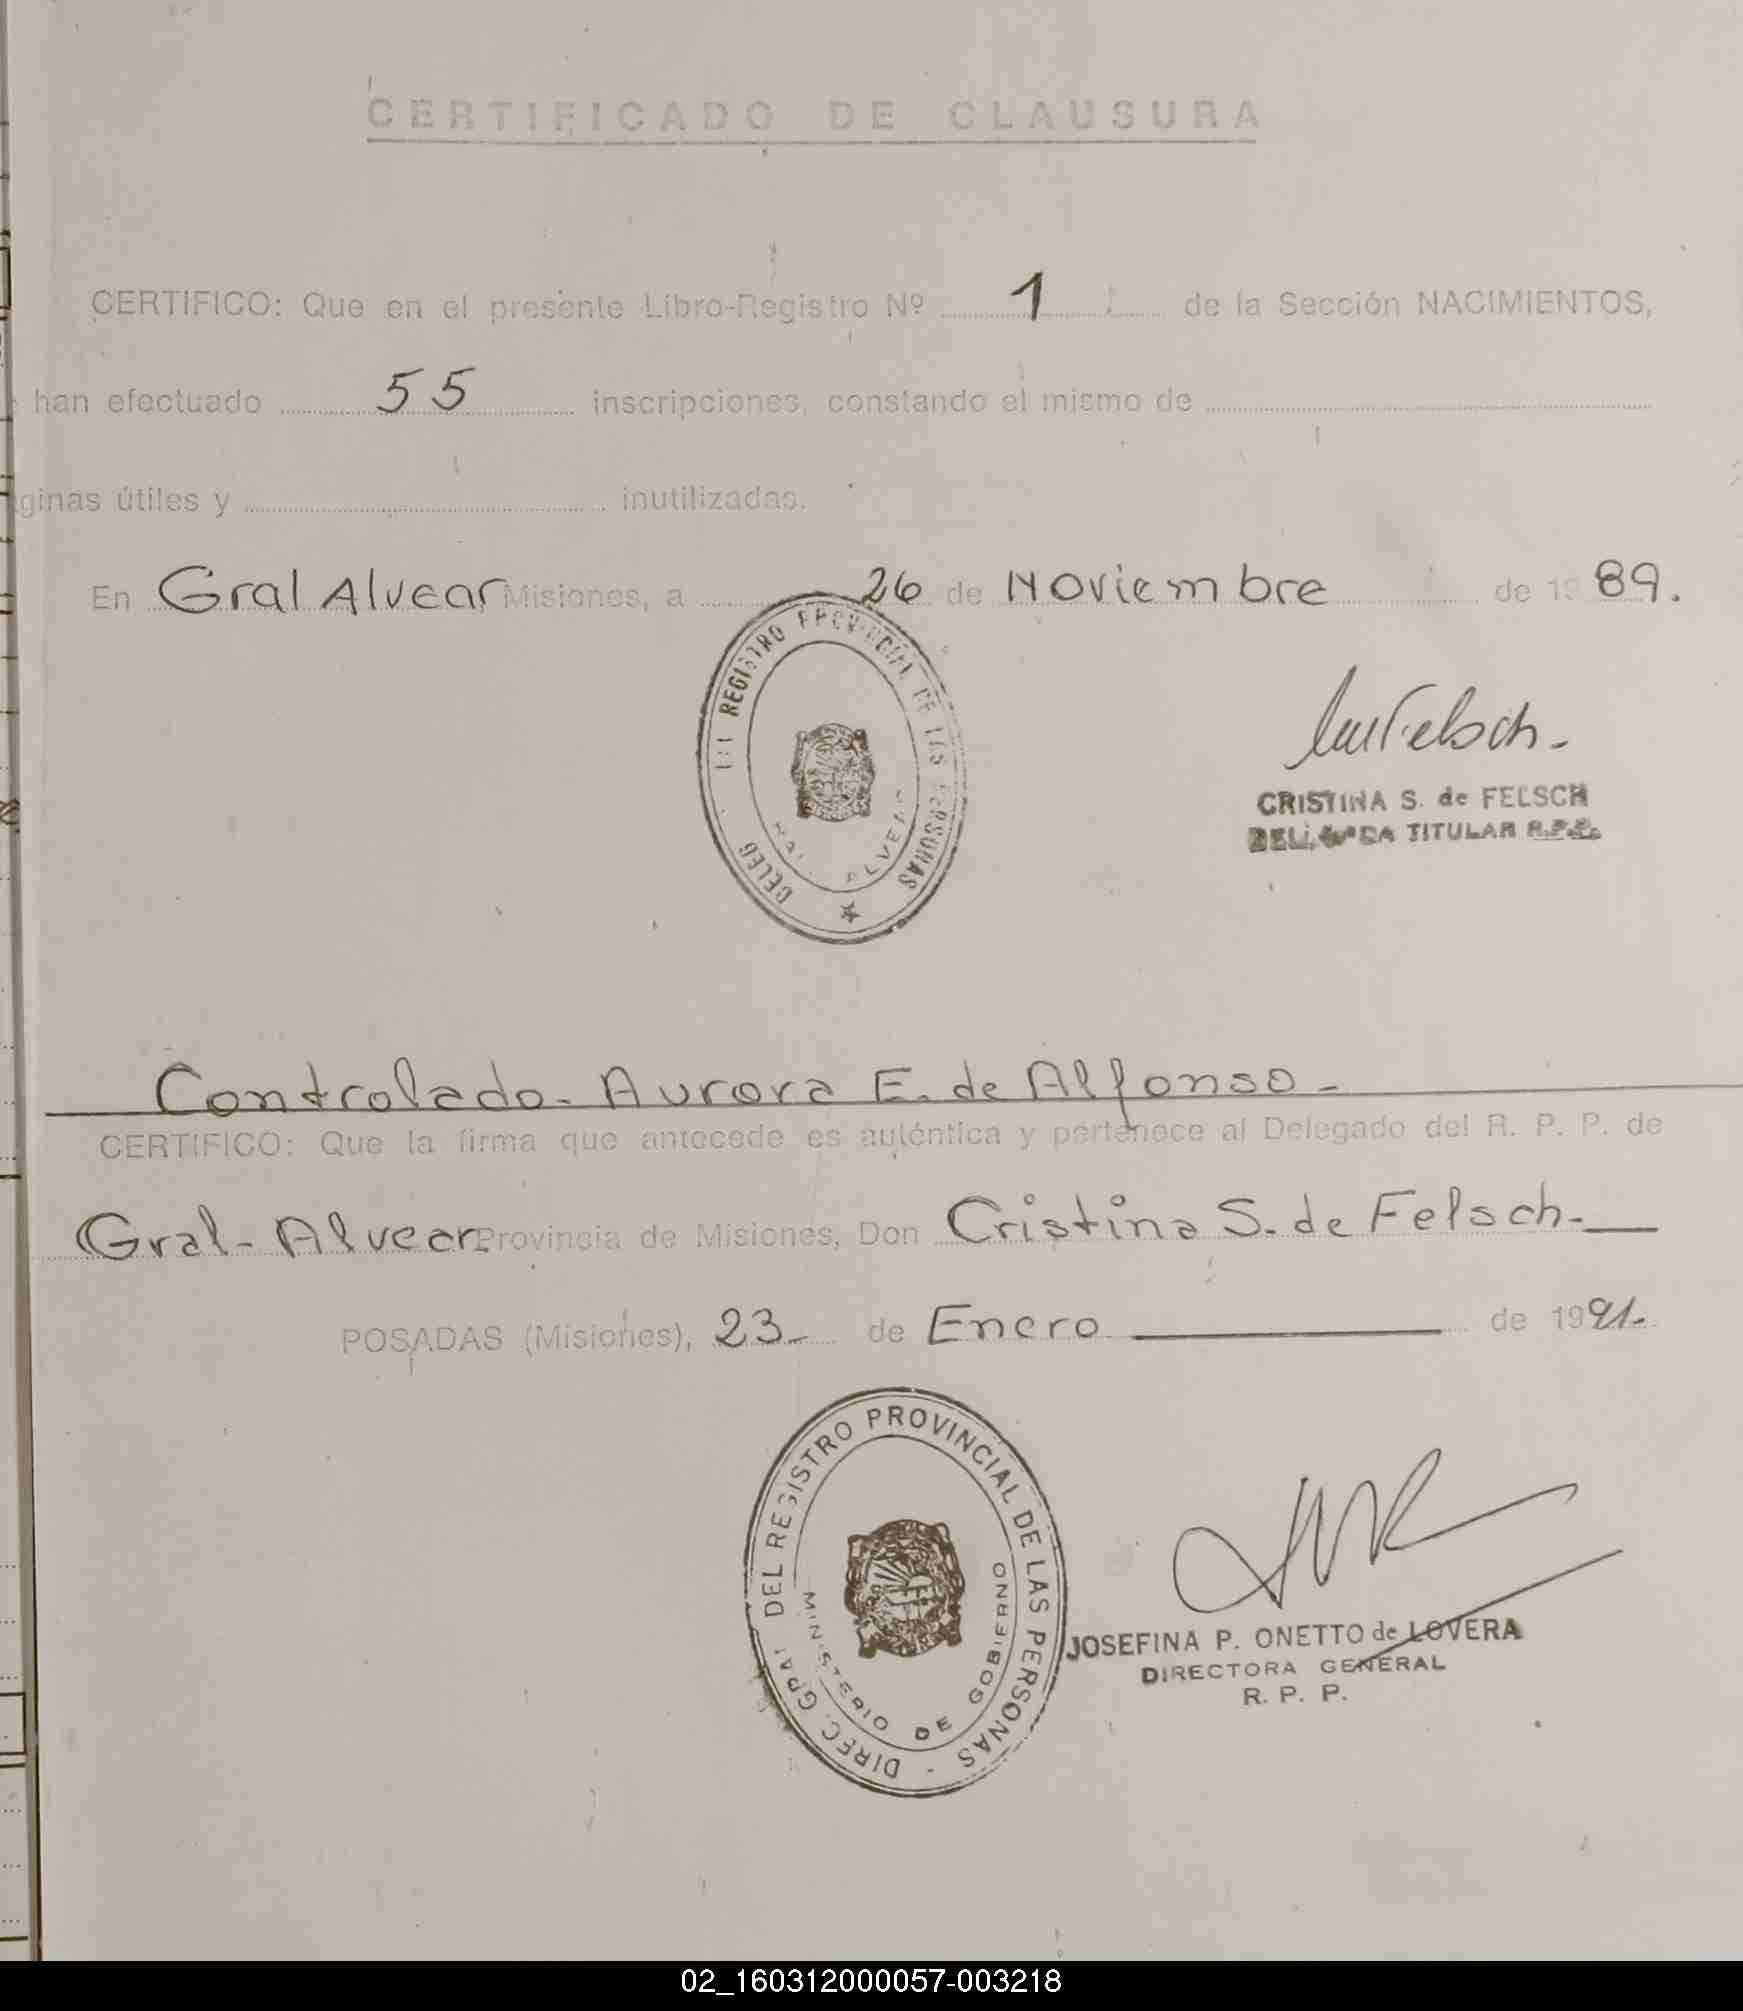 CERTIFICADO DE CLAUSURA
CERTIFICO: Que en el presente Libro-Registro Nº 1 de la Sección NACIMIENTOS,
han efectuado 55 inscripciones, constando el mismo de
ginas útiles y inutilizadas.
En Gral Alvear Misiones, a 26 de Noviembre de 1989.
REGISTRO PROVINCIAL DE LAS PERSONAS
DELEG
ALVEAR
Felsch.
CRISTINA S. de FELSCH
TITULAR R.P.P.
Controlado. Aurora E. de Alfonso-
CERTIFICO: Que la firma que antecede es auténtica y pertenece al Delegado del R. P. P. de
Gral. Alvear Provincia de Misiones, Don Cristina S. de Felsch.
POSADAS (Misiones), 23 de Enero de 1991.
DIREC. GRAL DEL REGISTRO PROVINCIAL DE LAS PERSONAS -
MINISTERIO DE GOBIERNO
JOSEFINA P. ONETTO de LOVERA
DIRECTORA GENERAL
R. P. P.
02_160312000057-003218